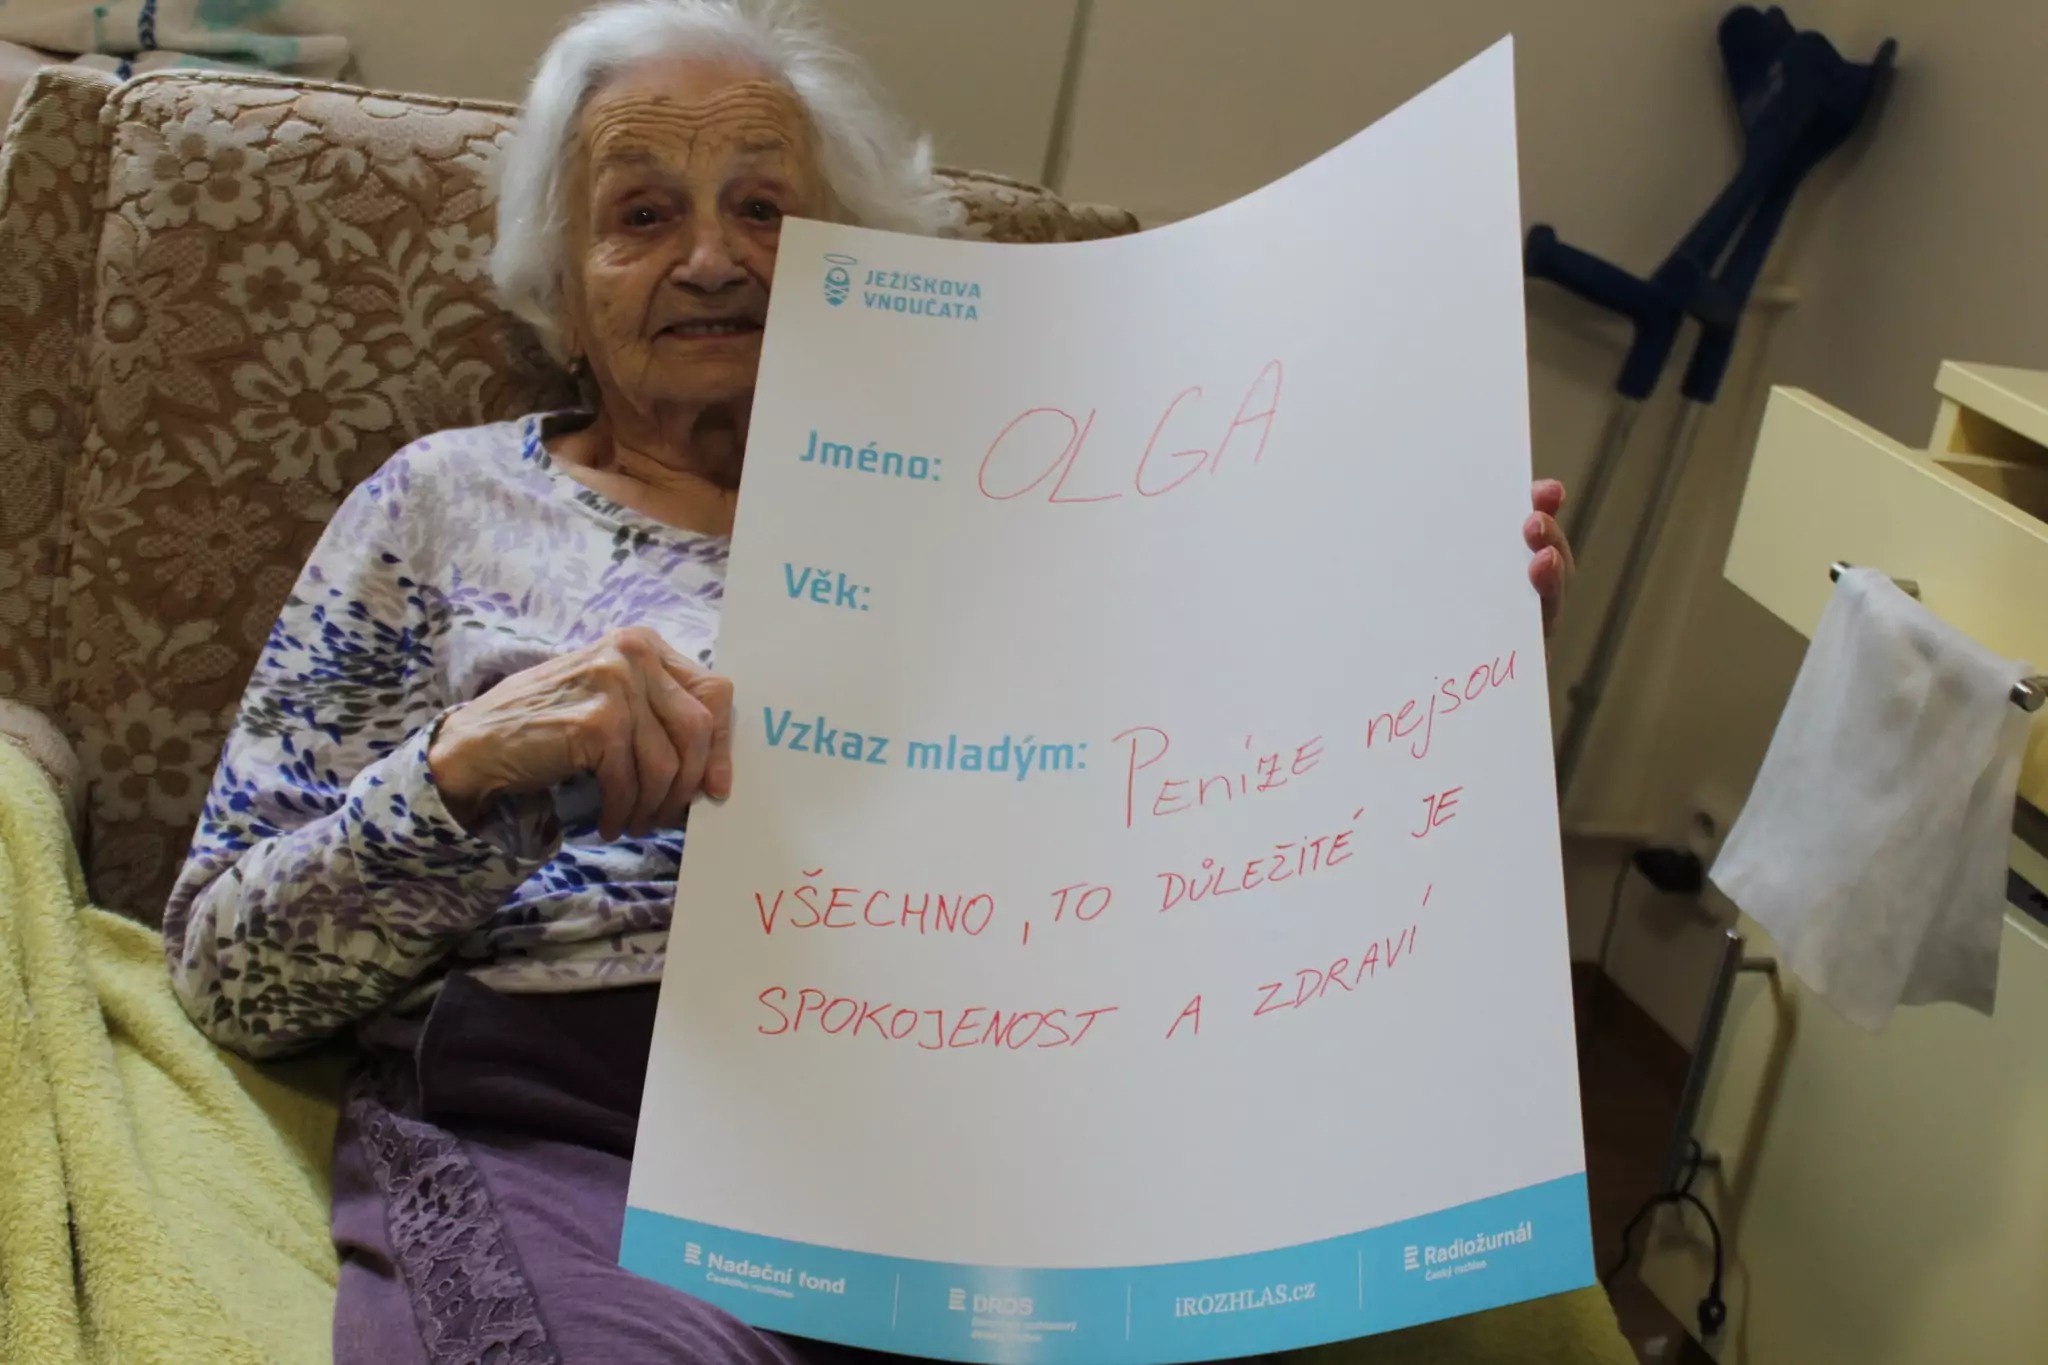 JEŽÍŠKOVA
VNOUČATA
Jméno: OLGA
Věk:
Vzkaz mladým: PENÍZE nejsou
VŠECHNO, TO DŮLEŽITÉ JE
SPOKOJENOST A ZDRAVÍ
Nadační fond
Českého rozhlasu
iROZHLAS.cz
Radiožurnál
Český rozhlas